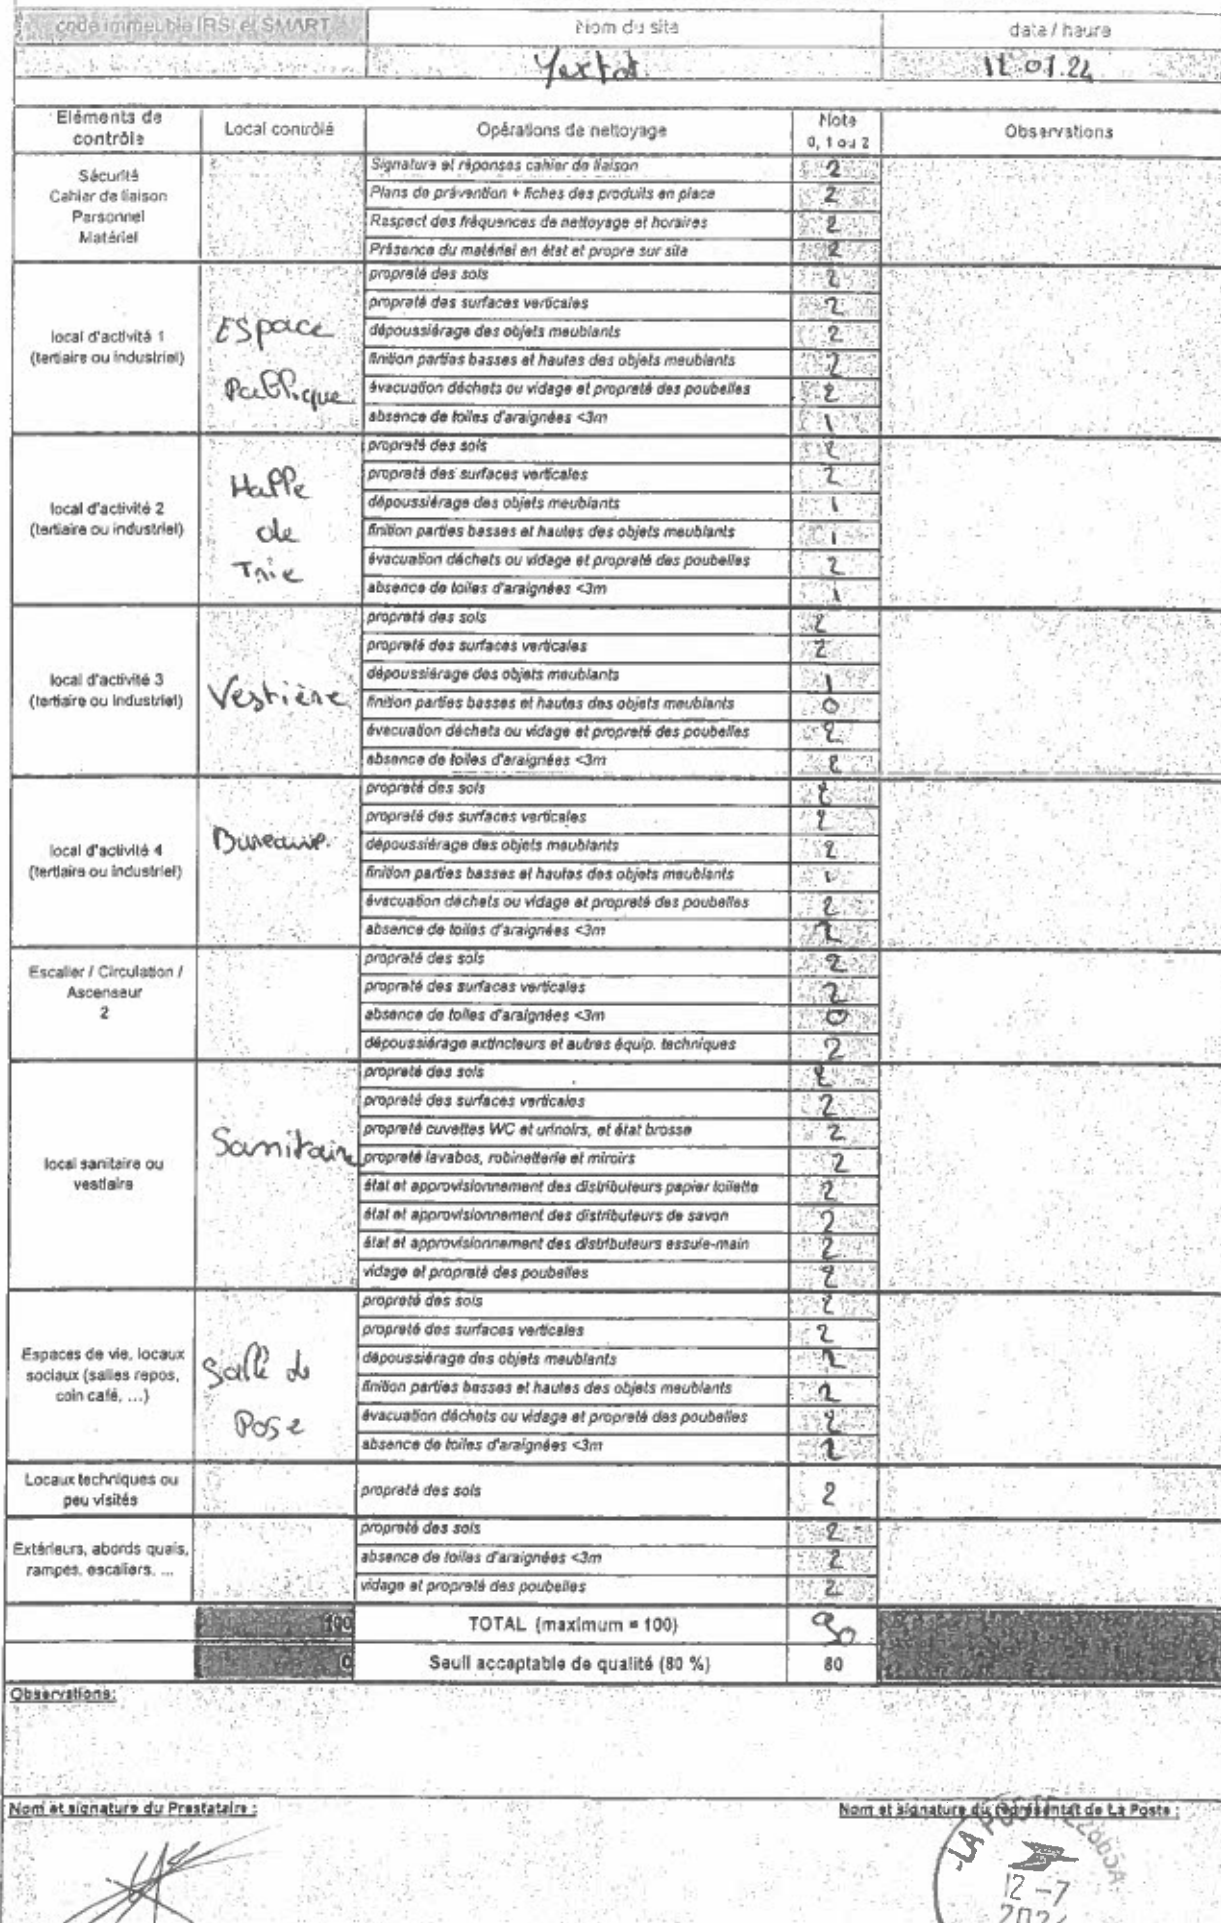 code immeuble IRSI et SMART Nom du site data / heure
12 07.24
Eléments de contrôle Local contrôlé Opérations de nettoyage Note 0, 1 ou 2 Observations
Sécurité
Cahier de liaison
Personnel
Matériel
Signature et réponses cahier de liaison 2
Plans de prévention + fiches des produits en place 2
Respect des fréquences de nettoyage et horaires 2
Présence du matériel en état et propre sur site 2
local d'activité 1
(tertiaire ou industriel)
Espace
Publique
propreté des sols 2
propreté des surfaces verticales 2
dépoussiérage des objets meublants 2
finition parties basses et hautes des objets meublants 2
évacuation déchets ou vidage et propreté des poubelles 2
absence de toiles d'araignées <3m 1
local d'activité 2
(tertiaire ou industriel)
Halle
de
Trie
propreté des sols 2
propreté des surfaces verticales 2
dépoussiérage des objets meublants 1
finition parties basses et hautes des objets meublants 1
évacuation déchets ou vidage et propreté des poubelles 2
absence de toiles d'araignées <3m 1
local d'activité 3
(tertiaire ou industriel)
Vestière
propreté des sols 2
propreté des surfaces verticales 2
dépoussiérage des objets meublants 1
finition parties basses et hautes des objets meublants 0
évacuation déchets ou vidage et propreté des poubelles 2
absence de toiles d'araignées <3m 2
local d'activité 4
(tertiaire ou industriel)
propreté des sols 2
propreté des surfaces verticales 2
dépoussiérage des objets meublants 2
finition parties basses et hautes des objets meublants 1
évacuation déchets ou vidage et propreté des poubelles 2
absence de toiles d'araignées <3m 2
Escalier / Circulation /
Ascenseur
2
propreté des sols 2
propreté des surfaces verticales 2
absence de toiles d'araignées <3m 0
dépoussiérage extincteurs et autres équip. techniques 2
local sanitaire ou
vestiaire
Sanitaire
propreté des sols 2
propreté des surfaces verticales 2
propreté cuvettes WC et urinoirs, et état brosse 2
propreté lavabos, robinetterie et miroirs 2
état et approvisionnement des distributeurs papier toilette 2
état et approvisionnement des distributeurs de savon 2
état et approvisionnement des distributeurs essuie-main 2
vidage et propreté des poubelles 2
Espaces de vie, locaux
sociaux (salles repos,
coin café, ...)
Salle de
Pose
propreté des sols 2
propreté des surfaces verticales 2
dépoussiérage des objets meublants 2
finition parties basses et hautes des objets meublants 2
évacuation déchets ou vidage et propreté des poubelles 2
absence de toiles d'araignées <3m 2
Locaux techniques ou
peu visités
propreté des sols 2
Extérieurs, abords quais,
rampes, escaliers, ...
propreté des sols 2
absence de toiles d'araignées <3m 2
vidage et propreté des poubelles 2
100 TOTAL (maximum = 100) 90
0 Seuil acceptable de qualité (80 %) 80
Observations:
Nom et signature du Prestataire : Nom et signature du représentat de La Poste :
LA POSTE
12 -7